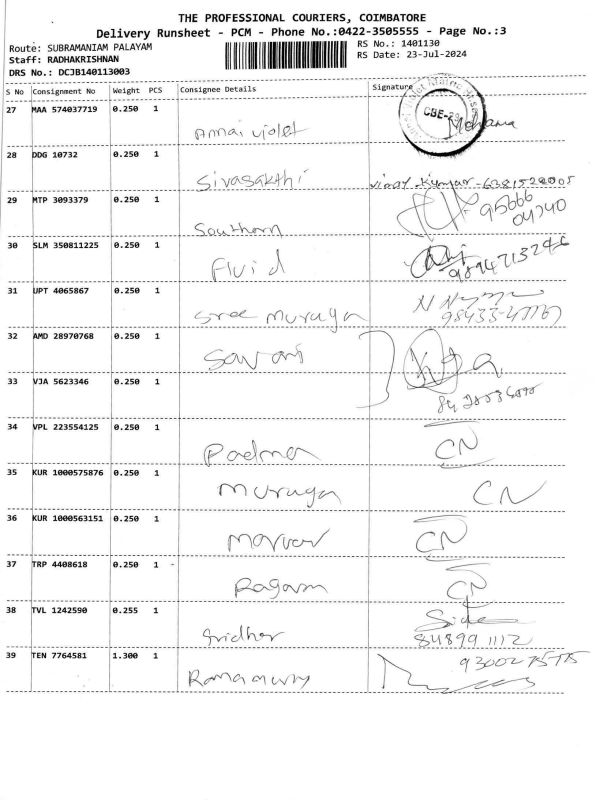 THE PROFESSIONAL COURIERS, COIMBATORE
Delivery Runsheet - PCM - Phone No.:0422-3505555 - Page No.:3
Route: SUBRAMANIAM PALAYAM
RS No.: 1401130
Staff: RADHAKRISHNAN
RS Date: 23-Jul-2024
DRS No.: DCJB140113003
S No Consignment No Weight PCS Consignee Details Signature
27 MAA 574037719 0.250 1
CBE-29
Mohana
Annai violet
28 DDG 10732 0.250 1
Sivasakthi
Vinay Kumar - 6381522005
29 MTP 3093379 0.250 1
95666
04740
Southern
30 SLM 350811225 0.250 1
Fluid
9894713246
31 UPT 4065867 0.250 1
Sree Muruga
32 AMD 28970768 0.250 1
Savani
33 VJA 5623346 0.250 1
34 VPL 223554125 0.250 1
Padma
CN
35 KUR 1000575876 0.250 1
Muruga
CN
36 KUR 1000563151 0.250 1
CN
37 TRP 4408618 0.250 1 -
Ragam
CN
38 TVL 1242590 0.255 1
Sridhar
84899 1112
39 TEN 7764581 1.300 1
93002 75775
Ramamury